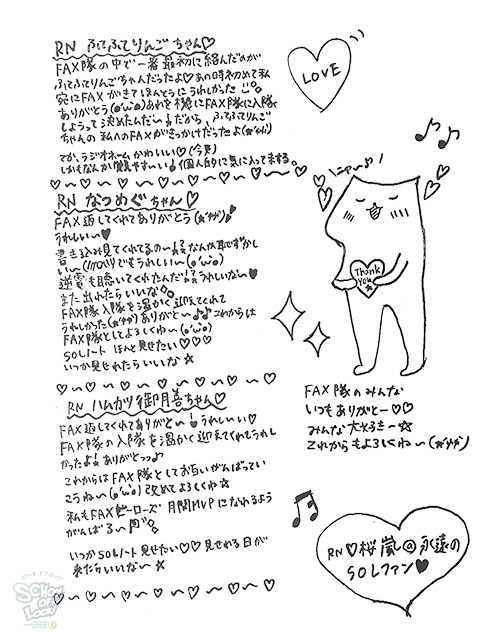 RN ふてふてりんごちゃん♡
FAX隊の中で一番最初に絡んだのが
ふてふてりんごちゃんだったよ♡あの時初めて私
宛にFAXがきてほんとうにうれしかった
ありがとう(о'ω'о)あれを機にFAX隊に入隊
しようって決めたんだ〜!だから、ふてふてりんご
ちゃんの私へのFAXがきっかけだったよ
てか、ラジオネームかわいい♡(今更)
しかもなんか覚えやすいい!個人的に気に入ってまする。
RN なつめぐちゃん♡
FAX返してくれてありがとう
うれしい〜♥
書き込み見てくれてるの〜!?なんか恥ずかし
い〜でもうれしい〜(о'ω'о)
逆電も聴いてくれたんだ!?うれしいな〜♥
また出れたらいいな
FAX隊入隊を温かく迎えてくれて
うれしかったありがと〜♪♪これからは
FAX隊としてよろしくね〜(о'ω'о)
SOLノートほんと見せたい♡♡♡
いつか見せれたらいいな☆
RN ハムカツ御月喜ちゃん♡
FAX返してくれてありがと〜!うれしいい♡
FAX隊の入隊を温かく迎えてくれてうれし
かったよ!ありがとっっ♪
これからはFAX隊としてお互いがんばってい
こうね〜(о'ω'о)改めてよろしくね☆
私もFAXヒーローズ月間MVPになれるよう
がんばる〜
いつかSOLノート見せたい♡♡見せれる日が
来たらいいな〜☆
LOVE
ニャ〜♪♪
Thank
You
FAX隊のみんな
いつもありがと〜♡♡
みんな大好き〜☆
これからもよろしくね〜
RN♡桜嵐@永遠の
SOLファン♥
SCHOOL
OF
LOCK!